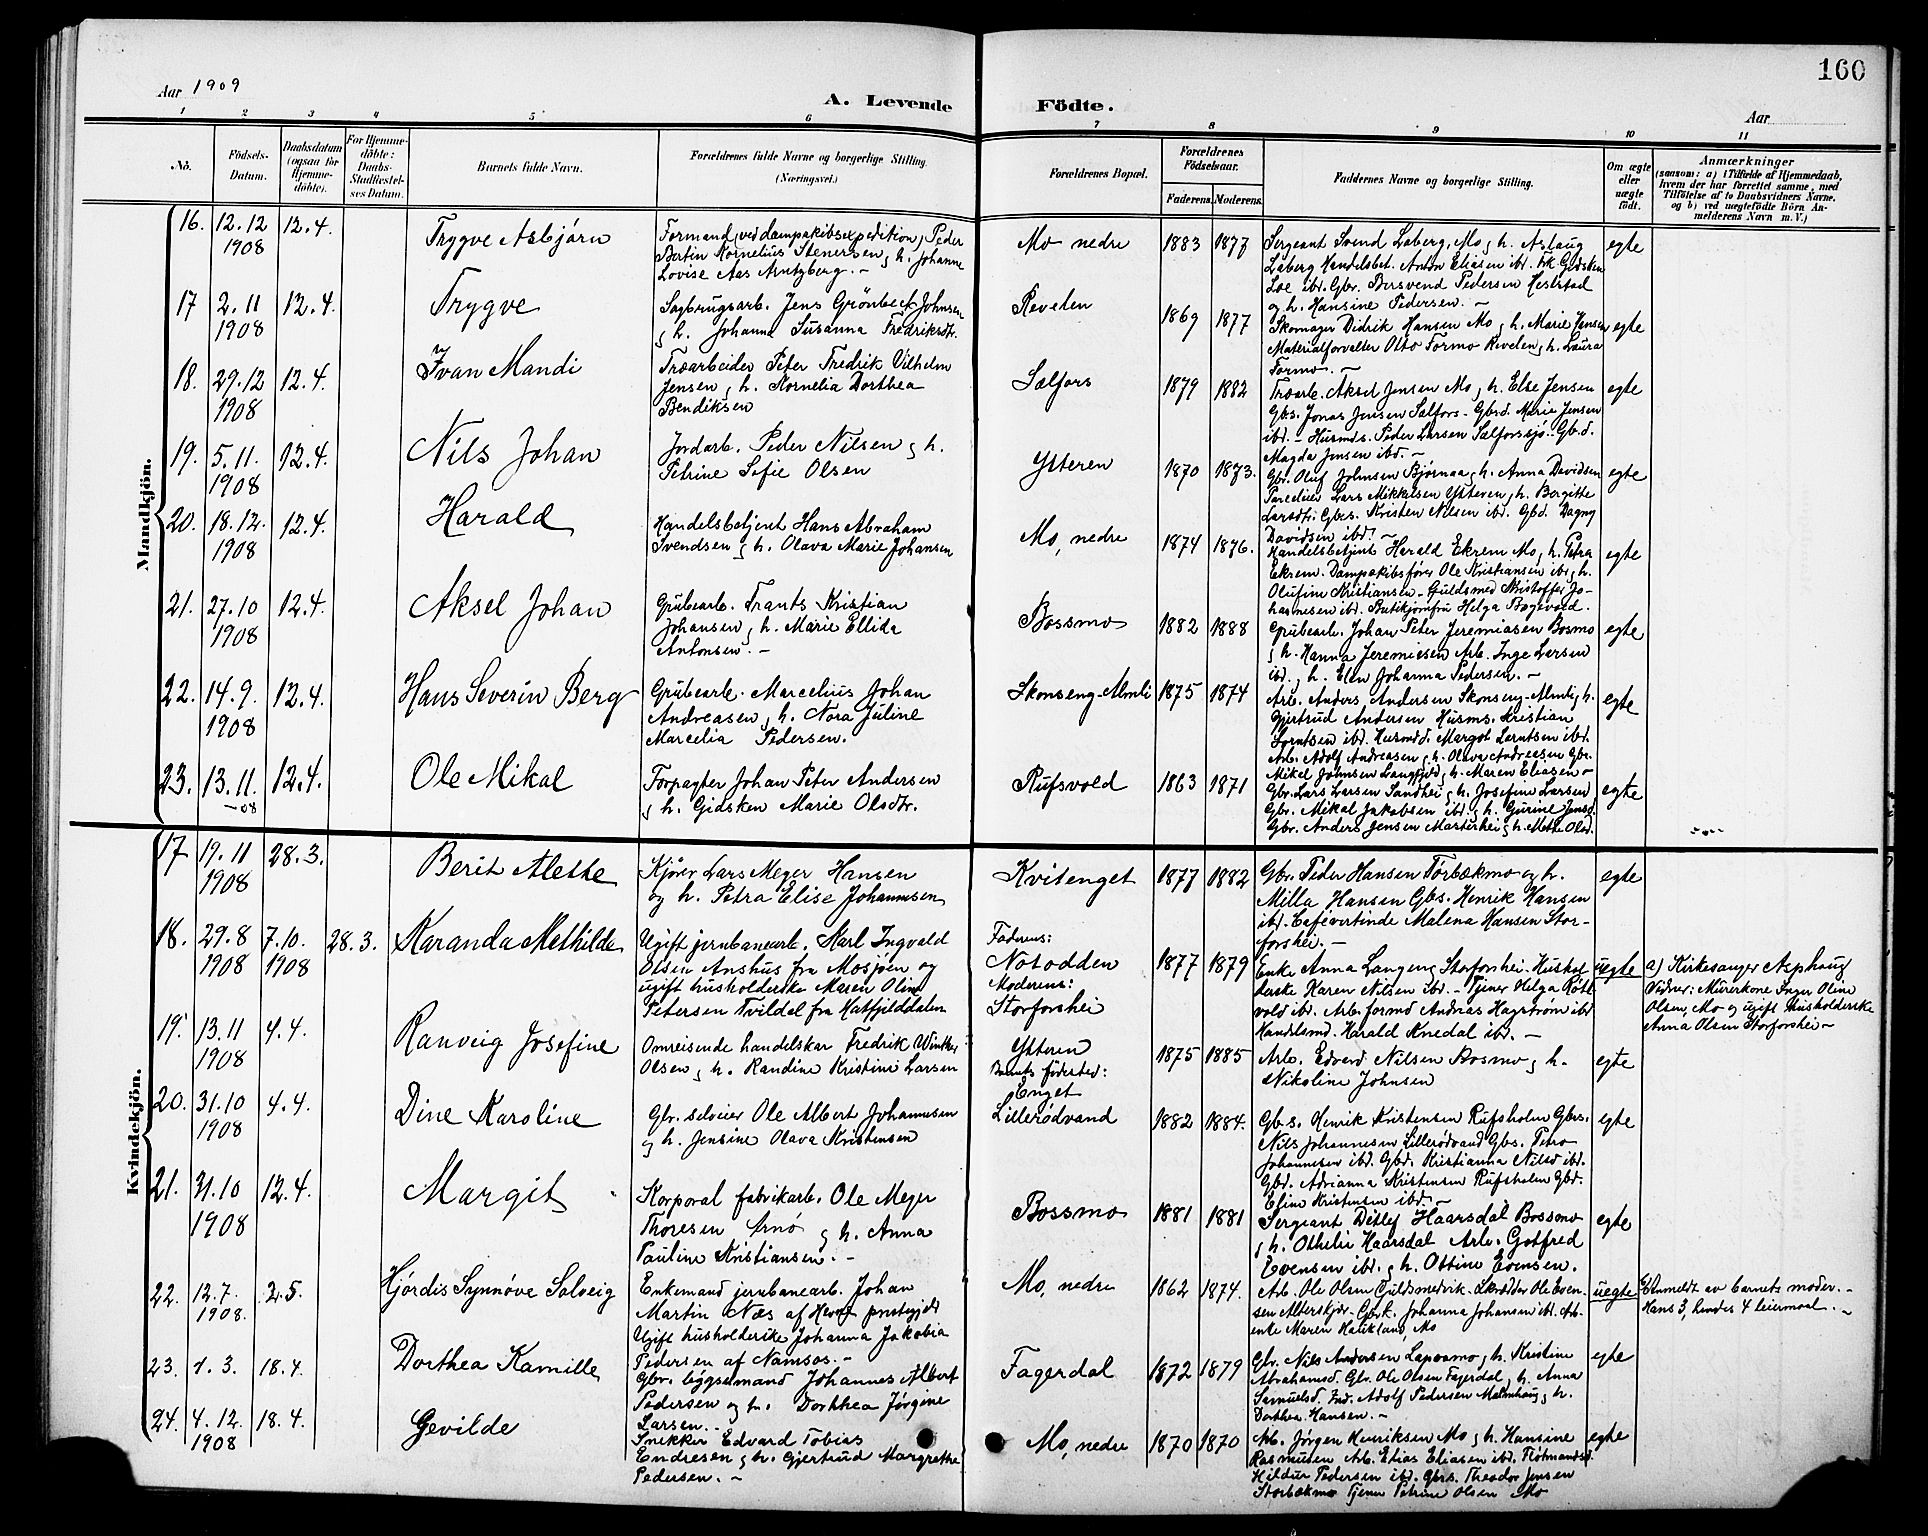 Aar 1909
A. Levende Födte.
160
Aar
1 2 3 4 5 6 7 8 9 10 11
No.
Födsels-Datum.
Daabsdatum (ogsaa for Hjemme-döbte).
For Hjemme-döbte: Daabs-Stadfæstel-ses Datum.
Barnets fulde Navn.
Forældrenes fulde Navne og borgerlige Stilling.
(Næringsvei.)
Forældrenes Bopæl.
Forældrenes Födselsaar.
Faderens. Moderens.
Faddernes Navne og borgerlige Stilling.
Om ægte eller uægte födt.
Anmærkninger
(saasom: a) i Tilfælde af Hjemmedaab,
hvem der har forrettet samme, med
Tilföielse af to Daabsvidners Navne,
og b) ved uægtefödte Börn An-
melderens Navn m. V.)
Mandkjön.
16. 12.12 1908 12.4. Trygve Asbjörn
Formand (ved dampskibsexpedition) Peder
Bertin Kornelius Stenersen og h. Johanne
Lovise Aas Arntzberg. -
Mo nedre 1883 1877
Sergeant Svend Laberg, Mo og h. Aslaug
Laberg Handelsbet. Anton Eliasen ibd. Frk Gidsken
Loe ibd. Gbr. Bersvend Pedersen Heststad
og h. Hansine Pedersen. -
egte
17 2.11 1908 12.4. Trygve
Sagbrugsarb. Jens Grönbeck Johnsen
og h. Johanna Susanna Fredriksdtr.
Revelen 1869 1877
Skomager Didrik Hansen Mo og h. Marie Hansen
Materialforvalter Otto Formo Revelen og h. Laura
Formo. -
egte
18. 29.12 1908 12.4. Ivan Mandi
Træarbeider Peter Fredrik Vilhelm
Jensen og h. Kornelia Dorthea
Bendiksen
Selfors 1879 1882
Træarb. Aksel Jensen Mo og h. Else Jensen
Gbs. Jonas Jensen Selfors - Gbrd. Marie Jensen
ibd. - Husmds. Peder Larsen Selforssjö. Gb.d.
Magda Jensen ibd. -
egte
19. 5.11. 1908 12.4. Nils Johan
Jordarb. Peder Nilsen og h.
Petrine Sofie Olsen
Ytteren 1870 1873.
Gbr. Oluf Johnsen Bjørnaa og h. Anna Davidsen
Parceleier Lars Mikkelsen Ytteren og h. Borgitte
Larsdtr. Gbrs. Kristen Nilsen ibd. Gbd. Dagny
Davidsen ibd. -
egte
20. 18.12. 1908 12.4. Harald
Handelsbetjent Hans Abraham
Svendsen og h. Olava Marie Johansen
Mo, nedre 1874 1876.
Handelsbetjent Harald Ekrem Mo og h. Petra
Ekrem. Dampskibsfører Ole Kristiansen ibd. og h.
Olufine Kristiansen - Guldsmed Kristoffer Jo-
hannesen ibd. Butikjomfru Helga Bogevold.
egte
21. 27.10 1908 12.4. Aksel Johan
Grubearb. Frants Kristian
Johansen og h. Marie Ellida
Antonsen. -
Bossmo 1882 1888
Grubearb. Johan Peter Jeremiasen Bosmo
og h. Hanna Jeremiesen Arb. Inge Larsen
ibd. og h. Elen Johanna Pedersen. -
egte
22. 14.9. 1908 12.4. Hans Severin Berg
Grubearb. Marcelius Johan
Andreasen og h. Nora Juline
Marcelia Pedersen.
Skonseng-Almli 1875 1874
Arb. Anders Andersen Skonseng-Almli og h.
Gjertrud Andersen Husms. Kristian
Lorntsen ibd. Husmdd. Margot Lorntsen ibd.
Arb. Adolf Andreasen og h. Olava Andreasen Gbr.
egte
23. 13.11. -08 12.4. Ole Mikal
Forpagter Johan Peter Andersen
og h. Gidsken Marie Olsdtr.
Rufsvold 1863 1871
Mikel Johnsen Langfjeld og h. Maren Eliasen -
Gbr. Lars Larsen Sandhei og h. Josefine Larsen
Gbr. Mikal Jakobsen ibd. og h. Gurine Jensd.
Gbr. Anders Jensen Martinhei og h. Mette Olsd.
egte
Kvindekjön.
17 19.11 1908 28.3. Berit Alette
Kjører Lars Meyer Hansen
og h. Petra Elise Johannesen
Kvitenget 1877 1882
Gbr. Peder Hansen Torbækmo og h.
Milla Hansen Gbs. Henrik Hansen
ibd. Cafévertinde Malena Hansen Stor-
forshei. -
egte
18. 29.8 1908 7.10. 1908 28.3. Karanda Mathilde
Ugift jernbanearb. Karl Ingvald
Olsen Anshus fra Mosjöen og
ugift husholderske Maren Oline
Petersen Tvildal fra Hatfjelddalen
Faderens:
Notodden
Moderens:
Storforshei
1877 1879
Enke Anna Langeng Storforshei. Hushol
derske Karen Nilsen ibd. - Tjener Helga Röt
vold ibd. Arb. formd Andreas Hagström ibd
Handlsmd. Harald Knedal ibd. -
uegte
a) Kirkesanger Asphaug
Vidner: Murerkone Inger Oline
Olsen, Mo og ugift husholderske
Anna Olsen Storforshei -
19. 13.11 1908 4.4. Ranveig Josefine
Omreisende handelskar Fredrik Winther
Olsen og h. Randine Kristine Larsen
Ytteren
Barnets fødested:
Enget
1875 1885
Arb. Edvard Nilsen Bosmo og h.
Nikoline Johnsen
egte
20. 31.10 1908 4.4. Dine Karoline
Gbr. selveier Ole Albert Johannesen
og h. Jensine Olava Kristensen
Lillerödvand 1882 1884.
Gbs. Henrik Kristensen Rufsholm Gbrs.
Nils Johannesen Lillerødvand Gbs. Petro
Johannesen ibd. Gbd. Kristianna Nilsd ibd.
Gbd. Adrianna Kristensen Rufsholm Gbd.
Eline Kristensen ibd. -
egte
21. 31.10 1908 12.4. Margit
Korporal fabrikarb. Ole Meyer
Thoresen Arnö og h. Anna
Pauline Kristiansen. -
Bossmo 1881 1881
Sergeant Ditlef Haarsdal Bossmo
og h. Othelie Haarsdal Arb. Gotfred
Evensen ibd. og h. Ottine Evensen.
egte
22. 12.7. 1908. 2.5. Hjördis Synnöve Solveig
Enkemand jernbanearb. Johan
Martin Næs af Hemnes prestegjeld
Ugift husholderske Johanna Jakobia
Pedersen af Namsos. -
Mo, nedre 1862 1874.
Arb. Ole Olsen Guldsmedvik. Skrædder Ole Even-
sen Alterskjær. Gjæk. Johanna Johansen ibd. Arb.
enke Maren Haukland, Mo
uegte
Anmeldt av barnets moder. -
Hans 3, hendes 4 leiermaal. -
23. 1.3. 18.4. Dorthea Kamille
Gbr. bygselmand Johannes Albert
Pedersen og h. Dorthea Jörgine
Larsen.
Fagerdal 1872 1879
Gbr. Nils Andersen Laposmo og h. Kristine
Abrahamsd. Gbr. Ole Olsen Fagerdal og h. Anna
Samuelsd. Ind. Adolf Pedersen Melmhaug og h.
Dorthea Hansen. -
egte
24. 4.12. 1908 18.4. Gevilde
Snekker Edvard Tobias
Endresen og h. Gjertrud Margrethe
Pedersen. -
Mo, nedre 1870 1870
Arb. Jörgen Henriksen Mo og h. Hansine
Rasmussen Arb. Elias Eliasen ibd. Flötmandsd.
Hildur Pedersen ibd. Gbrs. Theodor Jensen
Storbækmo Tjener Petrine Olsen Mo
egte